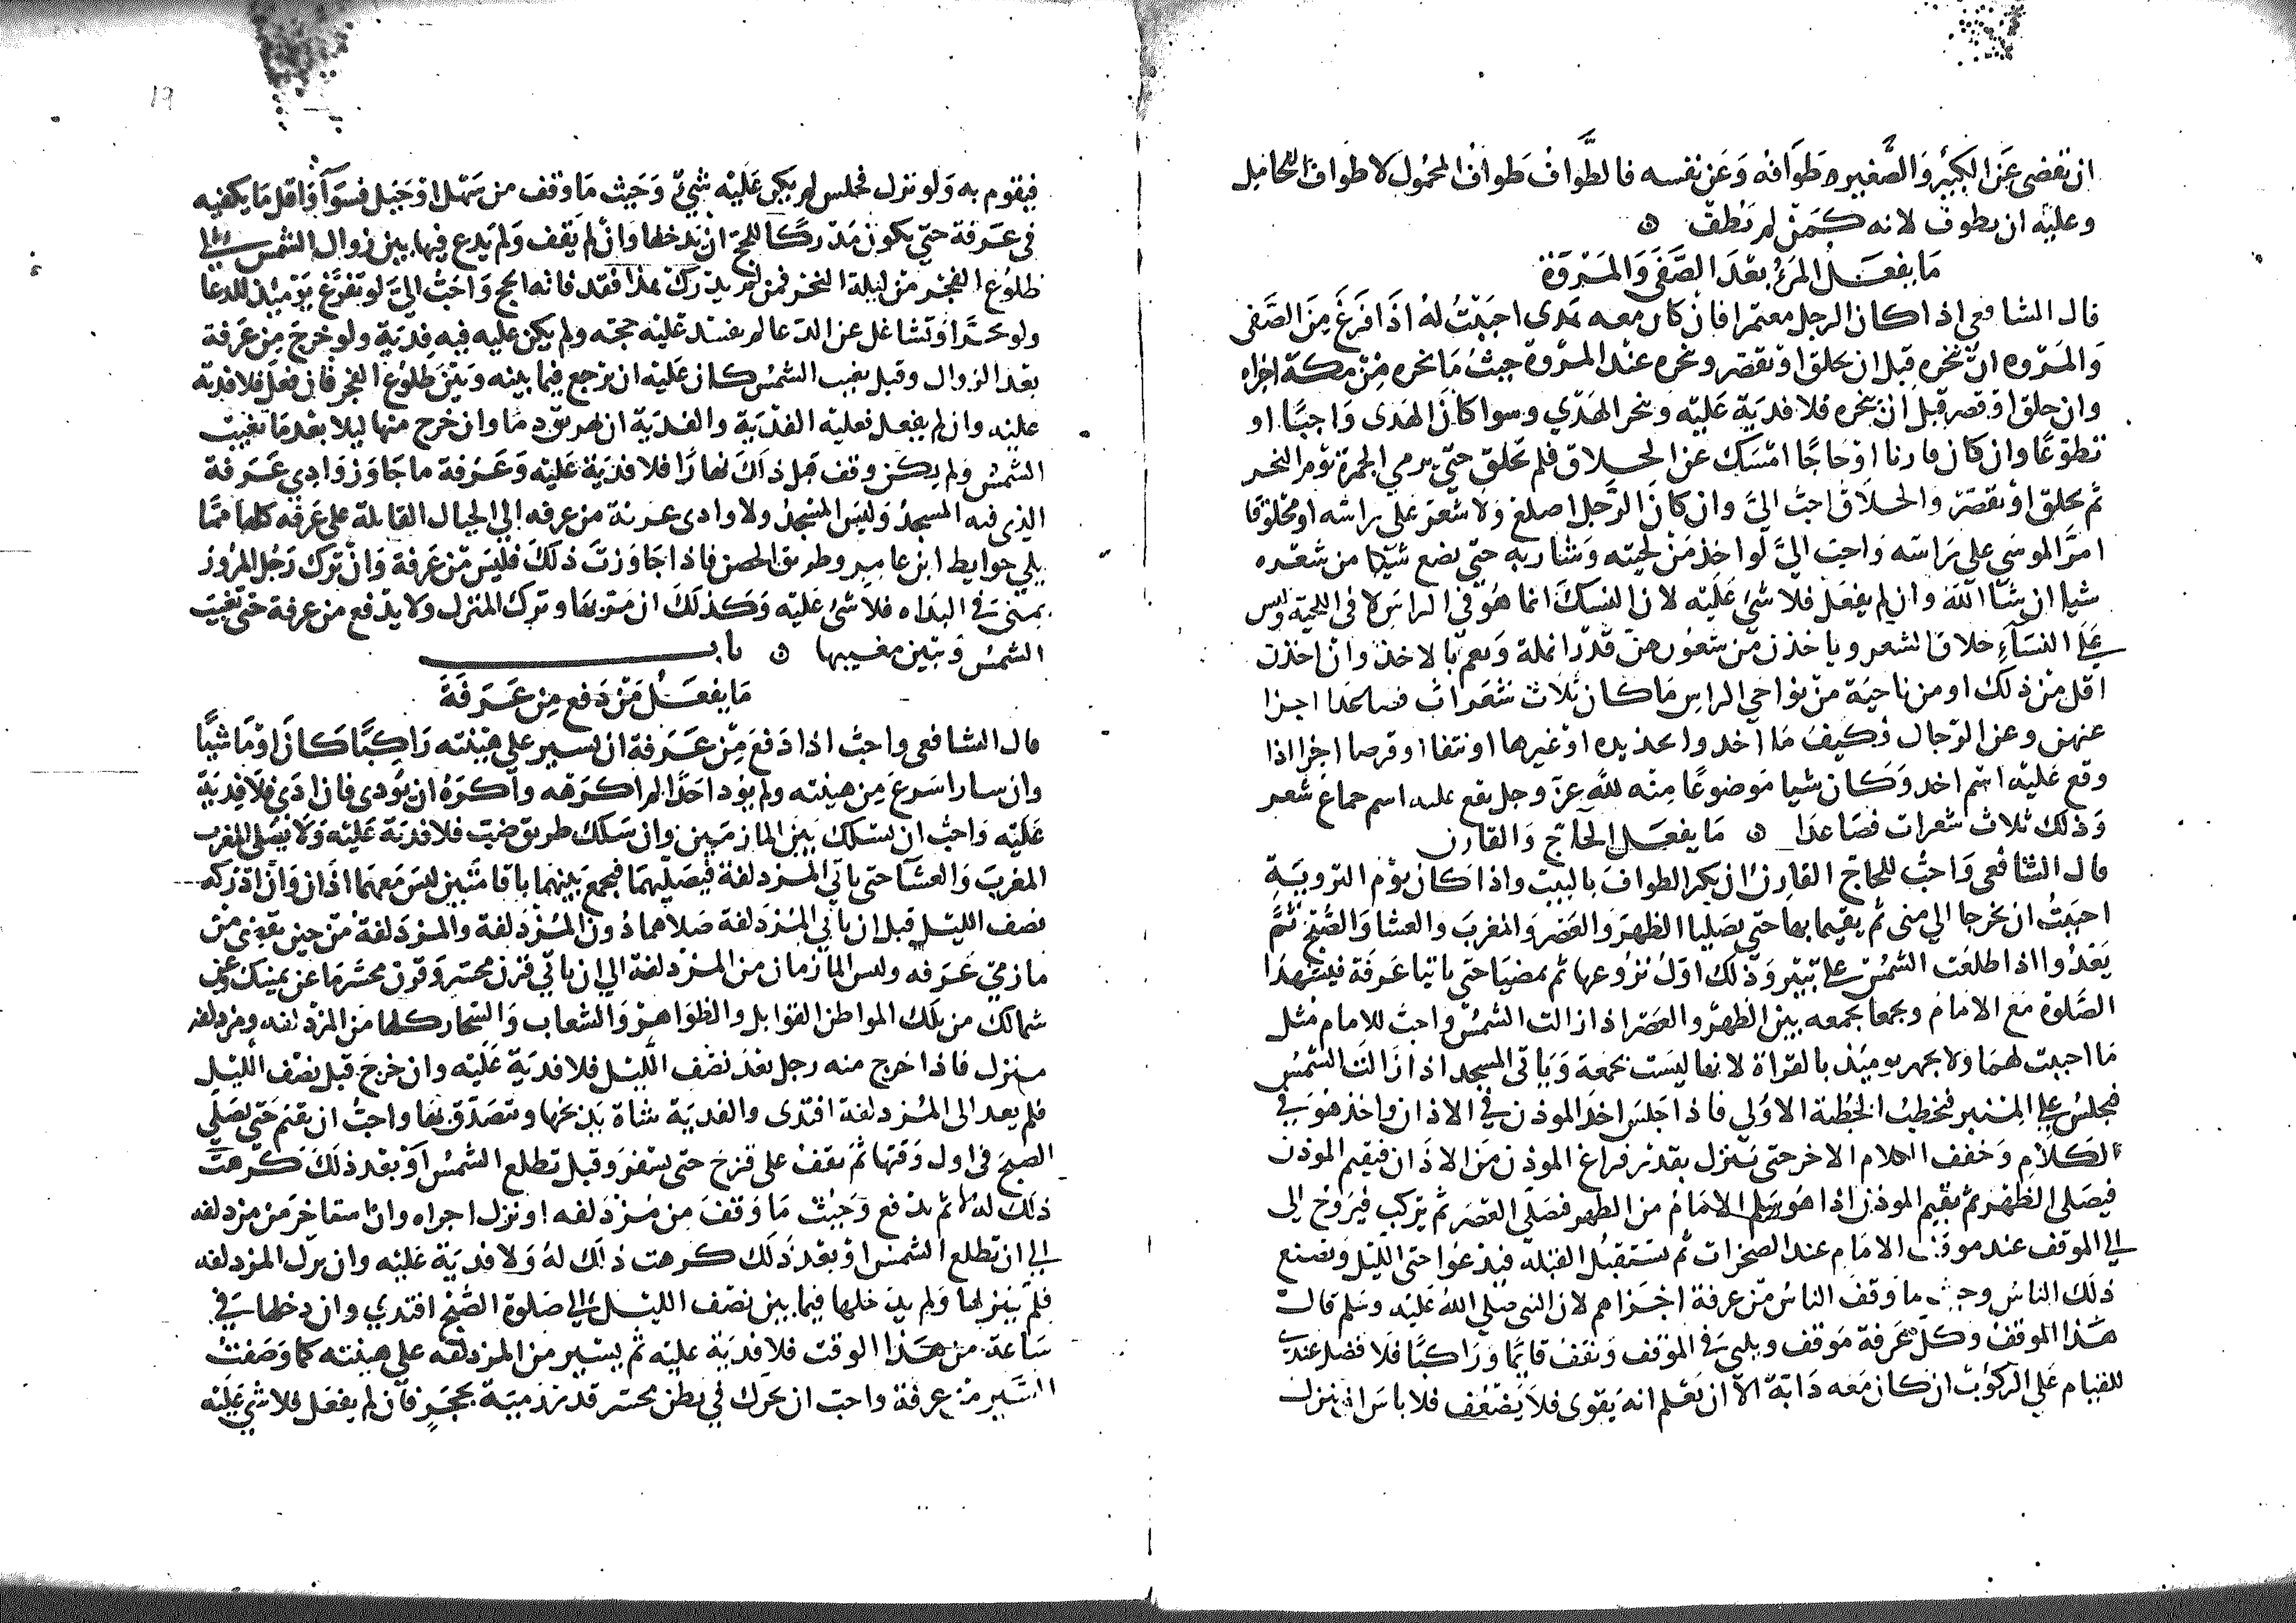 ان تقضى عن الكبير والصغير طوافه وعن نفسه فالطواف طواف المحمول لا طواف الحامل
وعليه ان يطوف لانه كمن لم يطف ه
ما يفعل المرء بعد الصفى والمروة
قال الشافعى اذا كان الرجل معتمرا فان كان معه هدى احببت له اذا فرغ من الصفى
والمروه ان ينحره قبل ان يحلق او يقصر وينحره عند المروة حيث ما نحره من مكة اجزاه
وان حلق او قصر قبل ان ينحره فلا فدية عليه وينحر الهدي وسوا كان الهدى واجبا او
تطوعا وان كان قارنا او حاجا امسك عن الحلاق فلم يحلق حتى يرمي الجمرة يوم النحر
ثم يحلق او يقصر والحلاق احب الي وان كان الرجل اصلع ولا شعر على راسه او محلوقا
امر الموسى على راسه واحب الي لو اخذ من لحيته وشاربه حتى يضع شيا من شعره
شيا ان شا الله وان لم يفعل فلا شئ عليه لان النسك انما هو في الراس لا في اللحية وليس
على النساء حلاق الشعر وياخذن من شعورهن قدر انملة ويعم بالاخذ وان اخذن
اقل من ذلك او من ناحية من نواحي الراس ما كان ثلاث شعرات فصاعدا اجزا
عنهن وعن الرجال وكيف ما اخذوا بحديده او غيرها او نتفا او قرصا اجزا اذا
وقع عليه اسم اخد وكان شيا موضوعا منه لله عز وجل يقع عليه اسم جماع شعر
وذلك ثلاث شعرات فصاعدا ه ما يفعل الحاج والقارن
قال الشافعى واحب للحاج القارن ان يكر الطواف بالبيت واذا كان يوم التروية
احببت ان يخرجا الى منى ثم يقيما بها حتى يصليا الظهر والعصر والمغرب والعشا والصبح ثم
يغدوا اذا طلعت الشمس على ثبير وذلك اول بزوعها ثم يمضيا حتى ياتيا عرفة فيشهدا
الصلوة مع الامام ويجمعا بجمعه بين الظهر والعصر اذا زالت الشمس واحب للامام مثل
ما احببت لهما ولا يجهر يوميذ بالقراة لانها ليست بجمعة وياتى المسجد اذا زالت الشمس
فيجلس على المنبر فيخطب الخطبة الاولى فاذا جلس اخذ الموذن في الاذان واخذ هو في
الكلام وخفف الكلام الاخر حتى ينزل بقدر فراغ الموذن من الاذان فيقيم الموذن
فيصلى الظهر ثم يقيم الموذن اذا هو سلم الامام من الظهر فيصلي العصر ثم يركب فيروح الى
الى الموقف عند موقف الامام عند الصخرات ثم يستقبل القبلة فيدعوا حتى الليل ويصنع
ذلك الناس وحيث ما وقف الناس من عرفة اجزاهم لان النبى صلى الله عليه وسلم قال
هذا الموقف وكل عرفة موقف ويلبي في الموقف ويقف قائما وراكبا فلا فضل عندي
للقيام على الركوب ان كان معه دابة الا ان يعلم انه يقوى فلا يضعف فلا باس ان ينزل
١٩
فيقوم به ولو نزل فجلس لم يكن عليه شيئ وحيث ما وقف من سهل او جبل فسوا واقل ما يكفيه
في عرفة حتى يكون مدركا للحج ان يدخلها وان لم يقف ولم يدع فيها بين زوال الشمس الى
طلوع الفجر من ليلة النحر فمن لم يدرك هذا فقد فاته الحج واحب الي لو تفرغ يوميذ للدعا
ولو تجر او تشاغل عن الدعا لم يفسد عليه حجه ولم يكن عليه فيه فدية ولو خرج من عرفة
بعد الزوال وقبل يغيب الشمس كان عليه ان يرجع فيما بينه وبين طلوع الفجر فان فعل فلا فدية
عليه وان لم يفعل فعليه الفدية والفدية ان يهريق دما وان خرج منها ليلا بعد ما تغيب
الشمس ولم يكن وقف قبل ذلك نهارا فلا فدية عليه وعرفة ما جاوز وادي عرفة
الذى فيه المسجد وليس المسجد ولا وادى عرنة من عرفه إلى الجبال القابلة على عرفه كلها مما
يلي حوايط ابن عامر وطريق الحصن فاذا جاوزت ذلك فليس من عرفة وان ترك رجل المرور
بمنى في البداه فلا شئ عليه وكذلك ان مر بها وترك المنزل ولا يدفع من عرفة حتى تغيب
الشمس ويتبين مغيبها ه باب
ما يفعل من دفع من عرفة
قال الشافعى واحب اذا دفع من عرفة ان يسير على هينته راكبا كان او ماشيا
وان سار اسرع من هينته ولم يؤد احدا لم اكرهه واكره ان يؤدى فان اذى فلا فدية
عليه واحب ان يسلك بين المازمين وان سلك طريق ضب فلا فدية عليه ولا يصلى المغرب
المغرب والعشا حتى ياتي المزدلفة فيصليهما فيجمع بينهما باقامتين ليس معهما اذان وان ادركه
نصف الليل قبل ان ياتي المزدلفة صلاهما دون المزدلفة والمزدلفة من حين يفضى من
مازمي عرفه وليس المازمان من المزدلفة الي ان ياتي قرن محسر وقرن محسر ما عن يمينك وعن
شمالك من تلك المواطن القوابل والظواهر والشعاب والشجار كلها من المزدلفه ومزدلفه
منزل فاذا خرج منه رجل بعد نصف الليل فلا فدية عليه وان خرج قبل نصف الليل
فلم يعد الى المزدلفة افتدى والفدية شاة يذبحها ويتصدق بها واحب ان يقيم حتى يصلي
الصبح فى اول وقتها ثم يقف على قزح حتى يسفر وقبل تطلع الشمس او بعد ذلك كرهت
ذلك له ثم يدفع وحيث ما وقف من مزدلفه او نزل اجزاه وان استاخر من مزدلفه
الى ان تطلع الشمس او بعد ذلك كرهت ذلك له ولا فدية عليه وان ترك المزدلفه
فلم ينزلها ولم يدخلها فيما بين نصف الليل الى صلوة الصبح افتدي وان دخلها في
ساعة من هذا الوقت فلا فدية عليه ثم يسير من المزدلفه على هينته كما وصفت
السير من عرفة واحب ان يحرك في بطن محسر قدر رمية بحجر فان لم يفعل فلا شي عليه